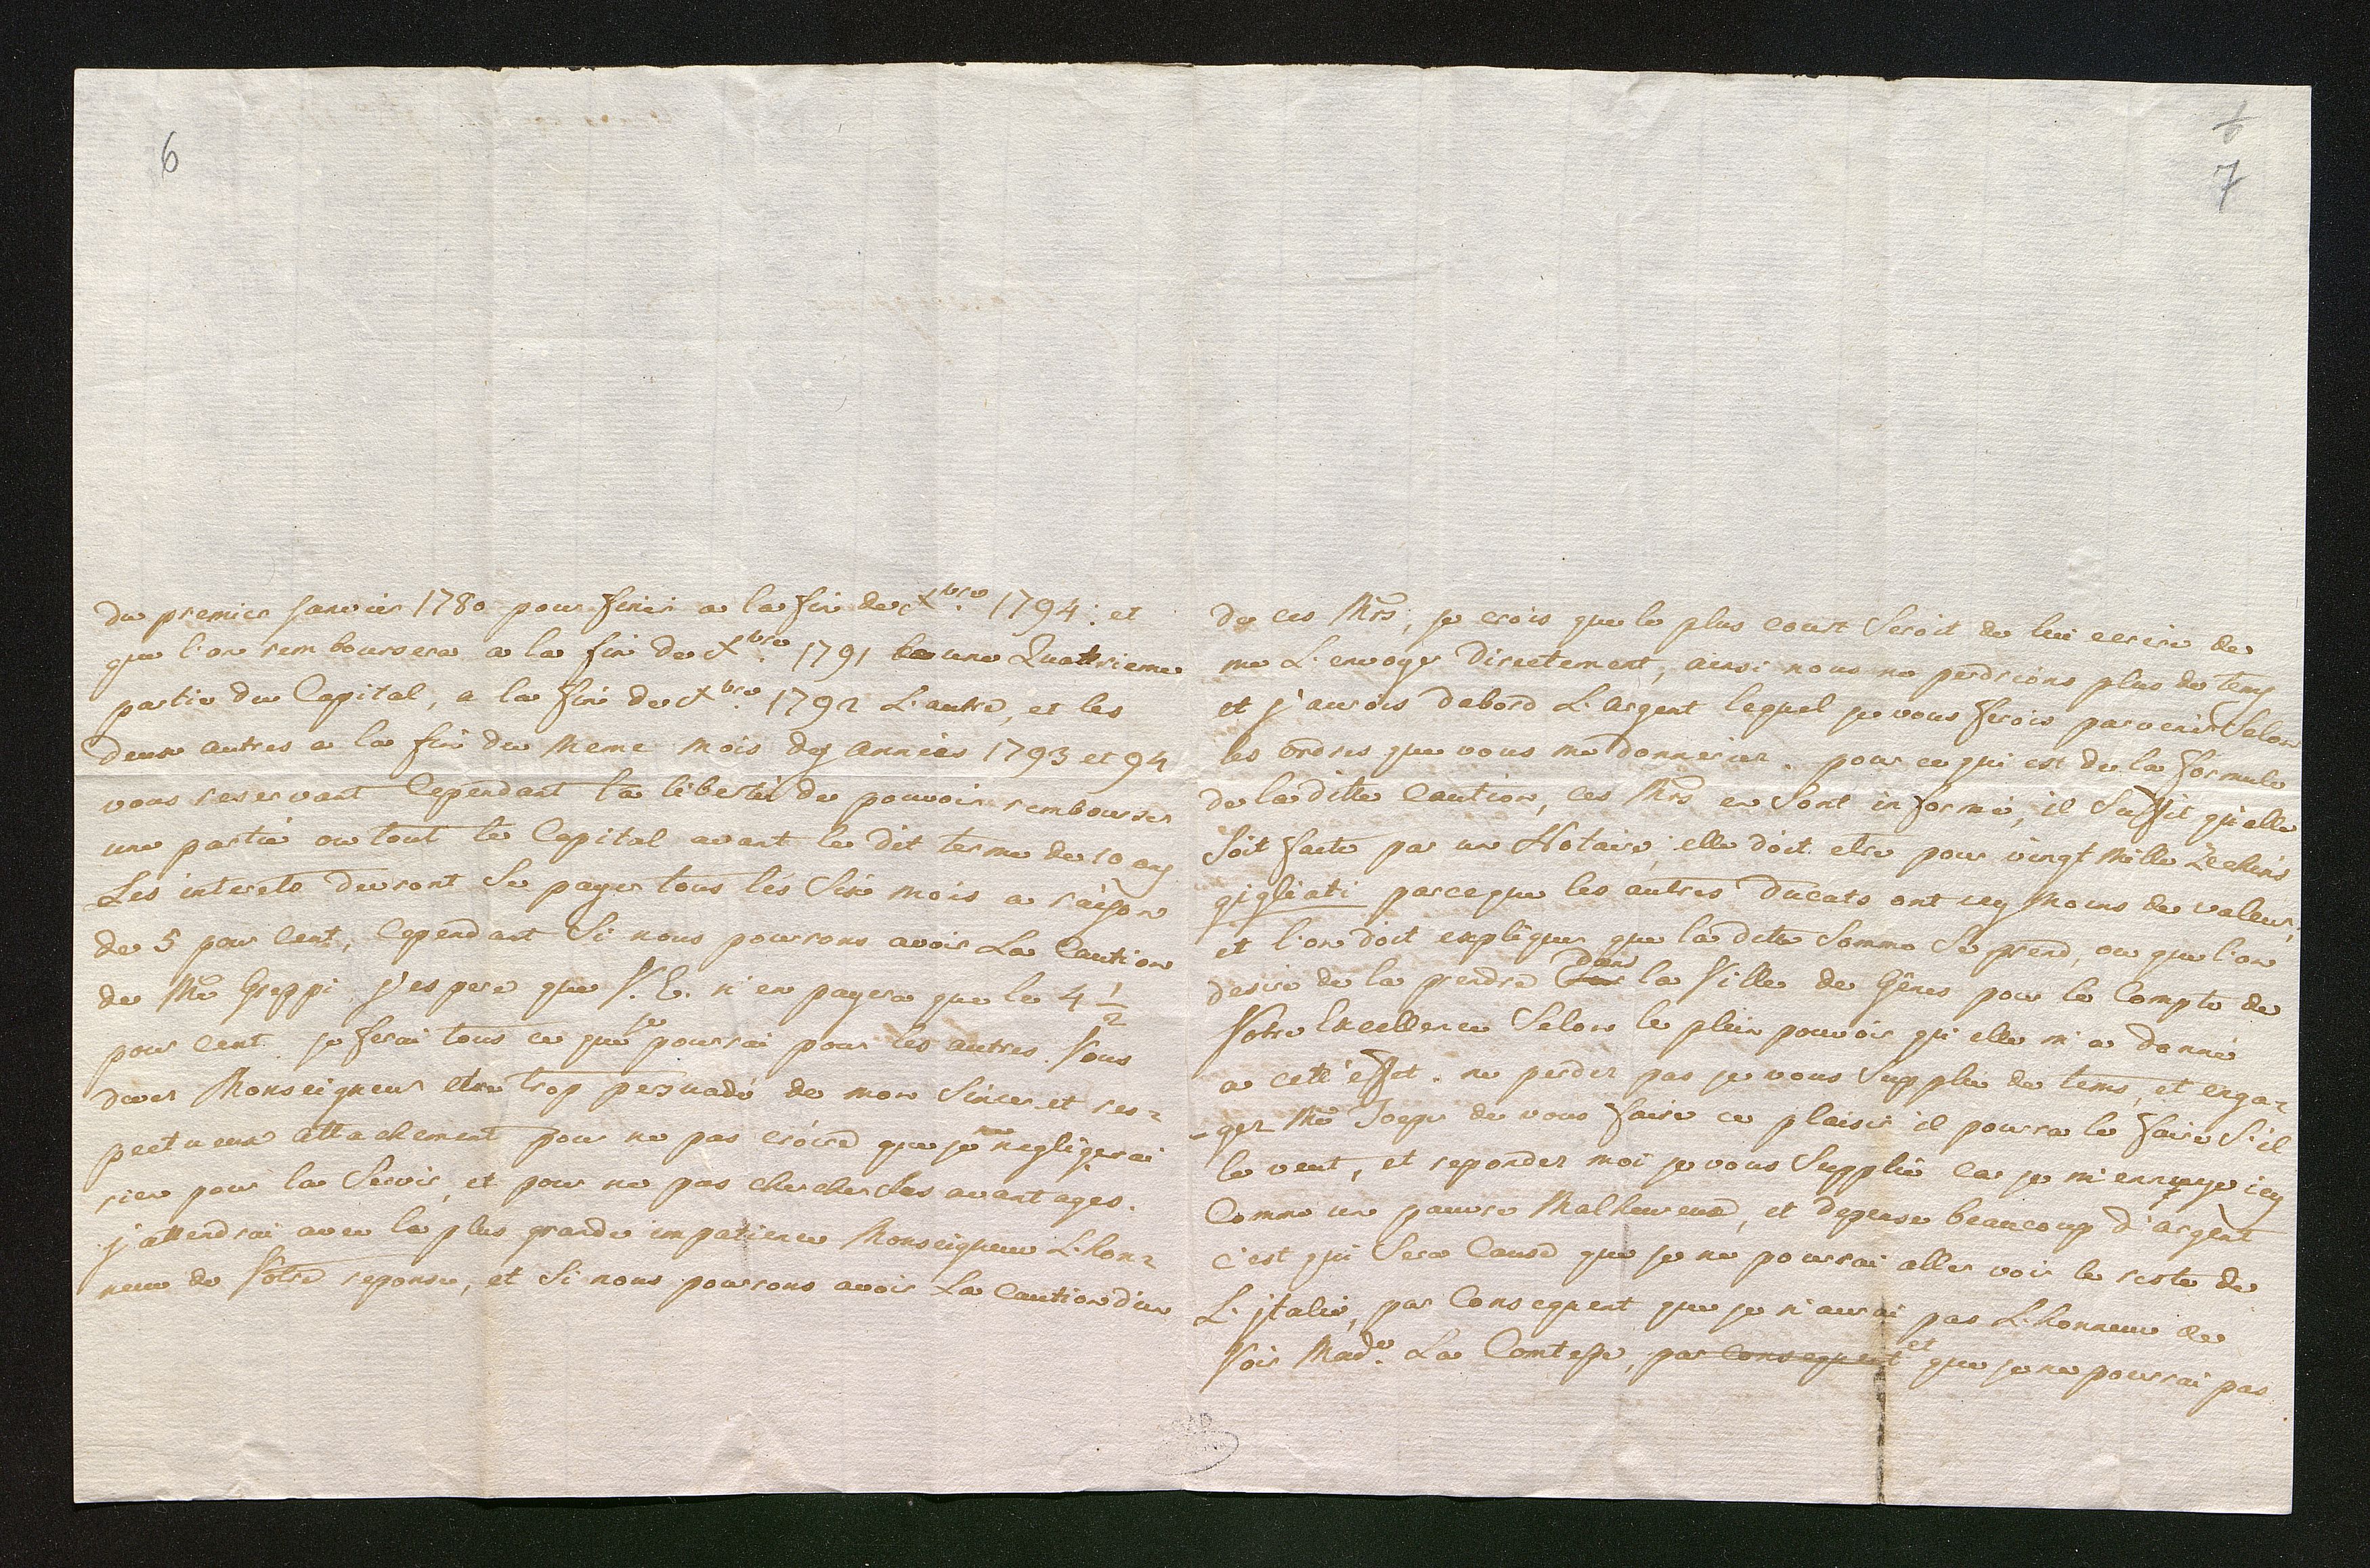 6
du premier Janvier 1780 pour finir a la fin de Xbre 1794: et
que l'on remboursera a la fin de Xbre 1791 une Quatrieme
partie du Capital, a la fin de Xbre 1792 L'autre, et les
deux autres a la fin du meme mois des années 1793 et 94
vous reservant Cependant la liberté de pouvoir rembourser
une partie ou tout le Capital avant le dit terme de 10 ans
Les interets devront se payer tous les Six mois a raison
de 5 pour Cent, Cependant Si nous pourrons avoir La Caution
de Mr Greppi j'espere que V. E. n'en payera que le 4 1/2
pour Cent. je ferai tous ce que je pourrai pour les autres. Vous
devez Monseigneur etre trop persuadé de mon Sincer et res=
pectueux attachement pour ne pas croire que je negligerai
rien pour la Servir, et pour ne pas chercher Ses avantages.
j'attendrai avec la plus grande impatience Monseigneur L'hon=
neur de Votre reponse, et Si nous pourrons avoir La Caution d'un
6
7
de ces Mrs, je crois que le plus court Seroit de lui ecrire de
me L'envoyer directement, ainsi nous ne perdrions plus de tems
et j'aurois dabord L'argent lequel je vous ferois parvenir Selon
les ordres que vous me donneriez. pour ce qui est de la formule
de la ditte Caution, ces Mrs en Sont informé, il Suffit qu'elle
Soit faite par un Notaire; elle doit etre pour vingt mille Zechins
gigliati parceque les autres Ducats ont icy moins de valeur;
et l'on doit expliquer que la dite Somme Se prend, ou que l'on
desire de la prendre dans la Ville de Gênes pour le Compte de
Votre Excellence Selon le plein pouvoir qu'elle m'a donné
a cett'effet. ne perdez pas je vous Supplie de tems, et enga=
-gez Mr de vous faire ce plaisir il pourra le faire S'il
le veut, et repondez moi je vous Supplie car je m'ennuye icy
Comme un pauvre Malheureux, et depense beaucoup d'argent
c'est qui Sera Cause que je ne pourrai aller voir le reste de
L'jtalie, par Consequent que je n'aurai pas L'honneur de
Voir Made La Comtesse, par Consequent et que je ne pourrai pas